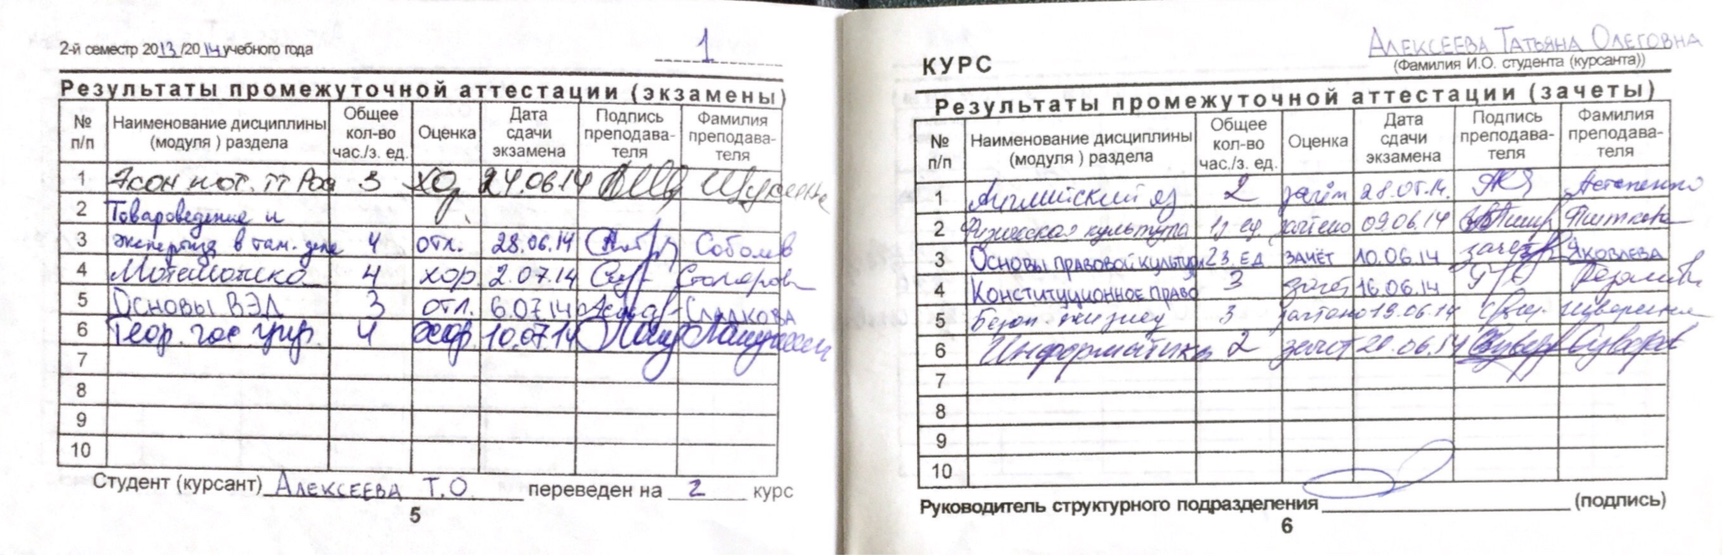 2-й семестр 2013/2014 учебного года
1
Результаты промежуточной аттестации (экзамены)
№ п/п Наименование дисциплины (модуля ) раздела Общее кол-во час./з. ед. Оценка Дата сдачи экзамена Подпись преподава-теля Фамилия преподава-теля
1 3 24.06.14
2 Товароведение и
3 экспертиза в там. деле 4 отл. 28.06.14 Соболев
4 Математика 4 хор. 2.07.14 Столяров
5 Основы ВЭД 3 отл. 6.07.14 Сладкова
6 Теор. гос упр. 4 хор 10.07.14
7
8
9
10
Студент (курсант) Алексеева Т.О. переведен на 2 курс
5
Алексеева Татьяна Олеговна
КУРС (Фамилия И.О. студента (курсанта))
Результаты промежуточной аттестации (зачеты)
№ п/п Наименование дисциплины (модуля ) раздела Общее кол-во час./з. ед. Оценка Дата сдачи экзамена Подпись преподава-теля Фамилия преподава-теля
1 Английский яз 2 зачёт Астапенко
2 Физическая культура зачтено 09.06.14
3 Основы правовой культуры 2 з. ед зачёт 10.06.14 зачет Яковлева
4 Конституционное право 3 зачёт 16.06.14
5 3 зачтено 19.06.14
6 Информатика 2 зачет 20.06.14 Суворов
7
8
9
10
Руководитель структурного подразделения (подпись)
6